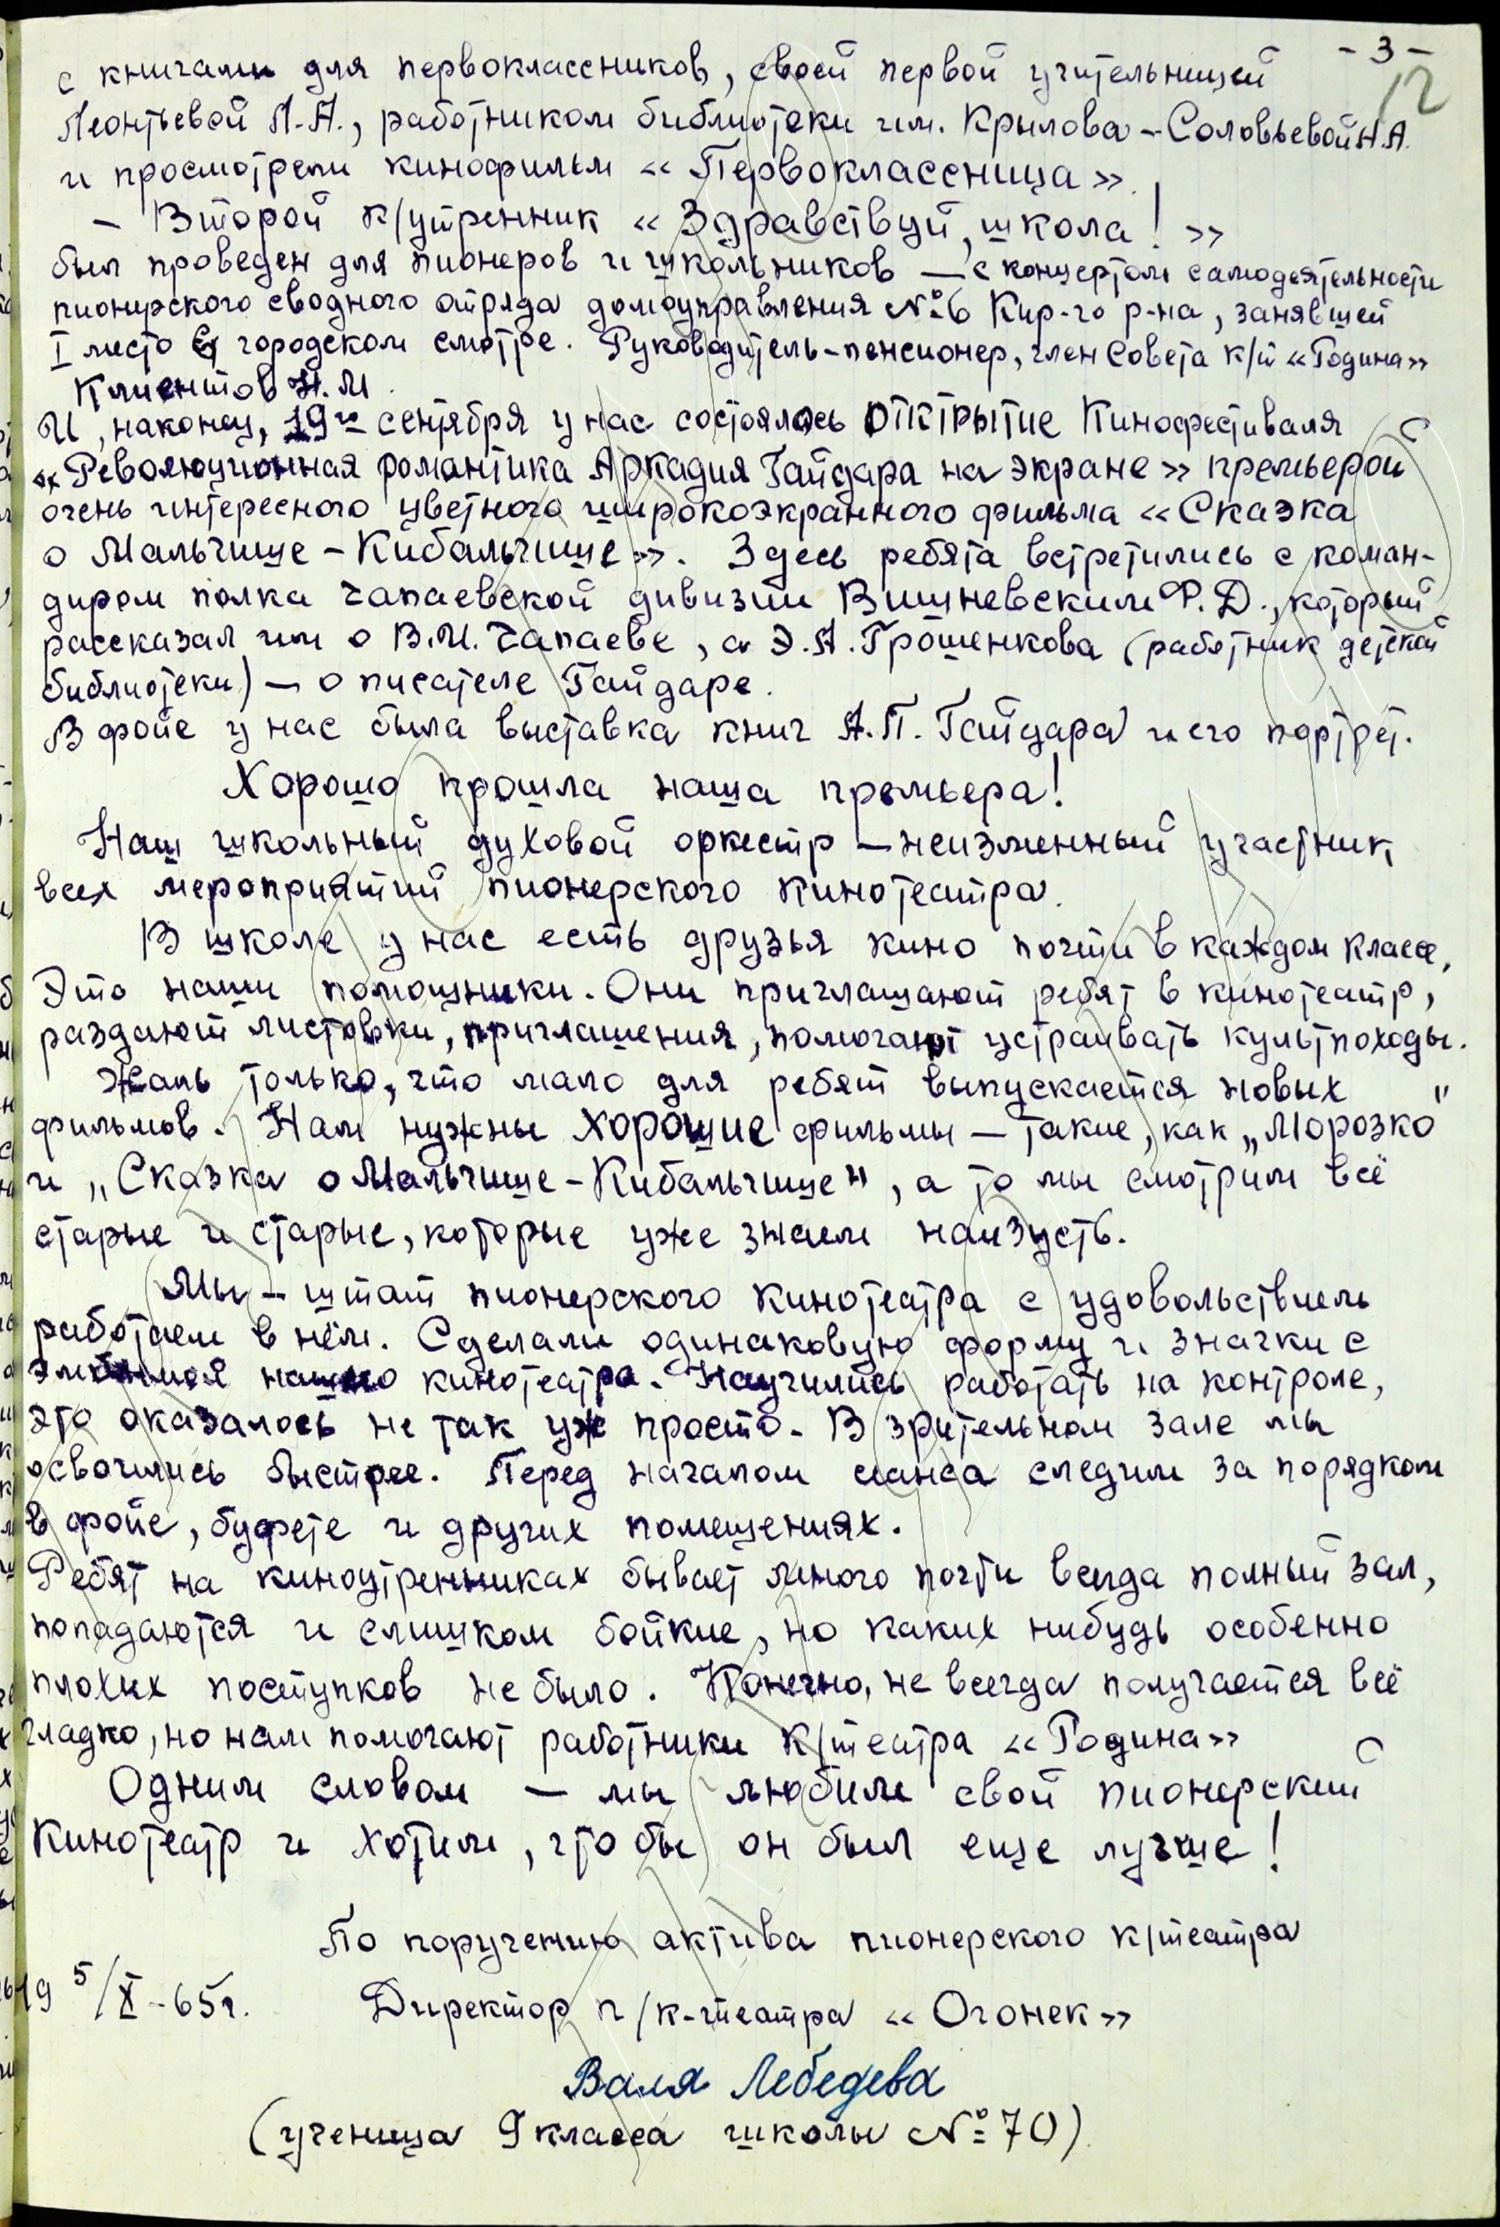 - 3 -
12
с книгами для первоклассников, своей первой учительницей
Леонтьевой Л.А., работником библиотеки им. Крылова - Соловьевой Н.А.
и просмотрели кинофильм « Первоклассница ».
- Второй к/утренник « Здравствуй, школа! »
был проведен для пионеров и школьников — с концертом самодеятельности
пионерского сводного отряда домоуправления № 6 Кир-го р-на, занявшей
I место в городском смотре. Руководитель-пенсионер, член Совета к/т «Родина»
Климентов Н.М.
И, наконец, 19го сентября у нас состоялось ОТКРЫТИЕ Кинофестиваля
« Революционная романтика Аркадия Гайдара на экране » премьерой
очень интересного цветного широкоэкранного фильма « Сказка
о Мальчише - Кибальчише ». Здесь ребята встретились с коман-
диром полка Чапаевской дивизии Вишневским Ф. Д., который
рассказал им о В.И. Чапаеве, а Э.А. Грошенкова (работник детской
библиотеки) — о писателе Гайдаре.
В фойе у нас была выставка книг А.П. Гайдара и его портрет.
Хорошо прошла наша премьера!
Наш школьный духовой оркестр — неизменный участник
всех мероприятий пионерского кинотеатра.
В школе у нас есть друзья кино почти в каждом классе.
Это наши помощники. Они приглашают ребят в кинотеатр,
раздают листовки, приглашения, помогают устраивать культпоходы.
Жаль только, что мало для ребят выпускается новых
фильмов. Нам нужны хорошие фильмы — такие, как „Морозко"
и „Сказка о Мальчише - Кибальчише", а то мы смотрим всё
старые и старые, которые уже знаем наизусть.
Мы - штат пионерского кинотеатра с удовольствием
работаем в нём. Сделали одинаковую форму и значки с
эмблемой нашего кинотеатра. Научились работать на контроле,
это оказалось не так уж просто. В зрительном зале мы
освоились быстрее. Перед началом сеанса следим за порядком
в фойе, буфете и других помещениях.
Ребят на киноутренниках бывает много почти всегда полный зал,
попадаются и слишком бойкие, но каких нибудь особенно
плохих поступков не было. Конечно, не всегда получается всё
гладко, но нам помогают работники к/театра « Родина »
Одним словом — мы любим свой пионерский
кинотеатр и хотим, что бы он был еще лучше!
По поручению актива пионерского к/театра
19 5/X - 65 г. Директор п/к-театра « Огонек »
Валя Лебедева
(ученица 9 класса школы № 70)